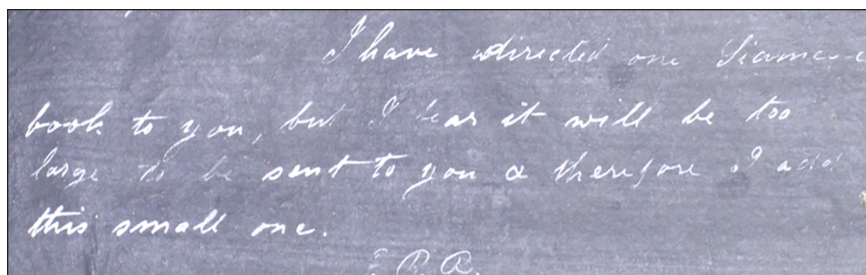 I have directed one Siamese
book to you, but I fear it will be too
large to be sent to you & therefore I add
this small one.
R. R.